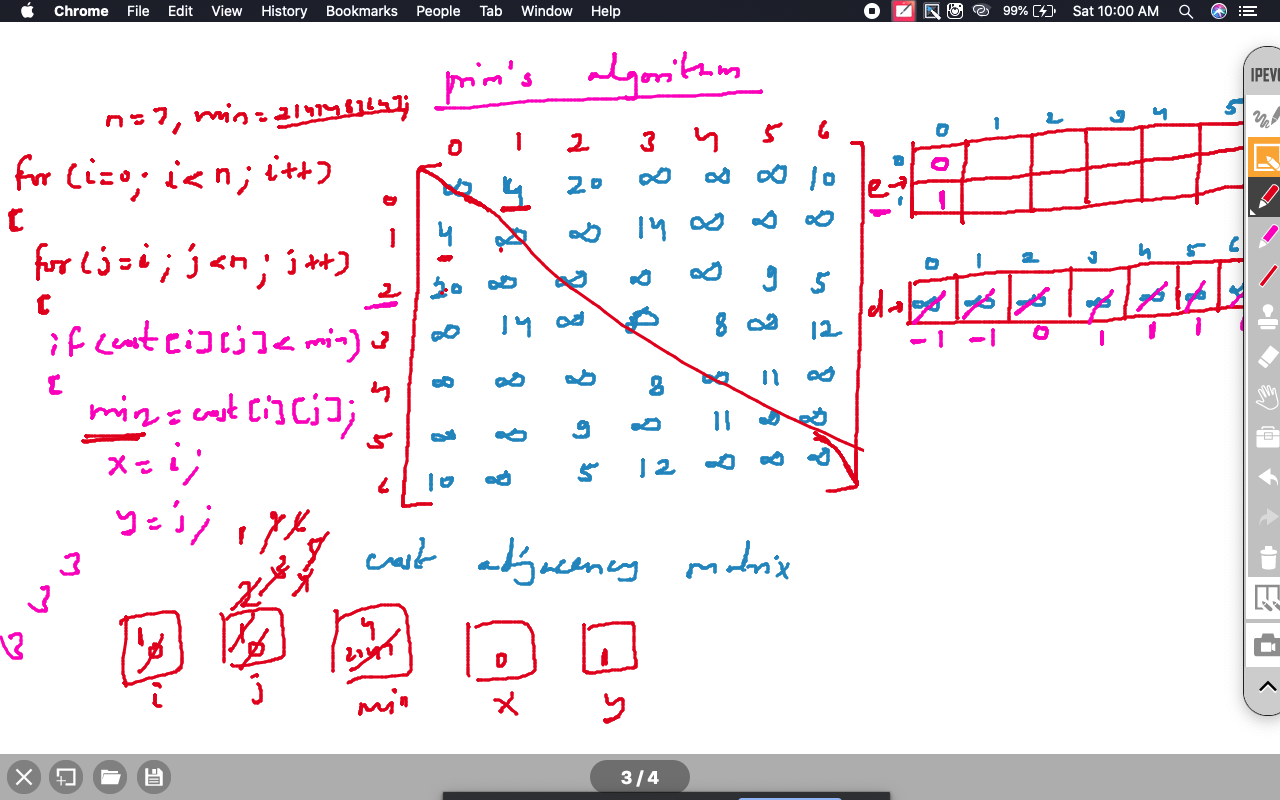 Chrome File Edit View History Bookmarks People Tab Window Help 99% Sat 10:00 AM
prim's algorithm
IPEV
n=7, min=2147483647;
for (i=0; i<n; i++)
{
for (j=i; j<n; j++)
{
if (cost[i][j]<min)
{
min=cost[i][j];
x=i;
y=j;
}
}
}
0 1 2 3 4 5 6
0 ∞ 4 20 ∞ ∞ ∞ 10
1 4 ∞ ∞ 14 ∞ ∞ ∞
2 20 ∞ ∞ ∞ ∞ 9 5
3 ∞ 14 ∞ ∞ 8 ∞ 12
4 ∞ ∞ ∞ 8 ∞ 11 ∞
5 ∞ ∞ 9 ∞ 11 ∞ ∞
6 10 ∞ 5 12 ∞ ∞ ∞
cost adjacency matrix
0 1 2 3 4 5
0 0
e→
1 1
0 1 2 3 4 5 6
d→ ∞ ∞ ∞ ∞ ∞ ∞
-1 -1 0 1 1 1
1 0
1 0
4
0
1
i j min x y
3 / 4